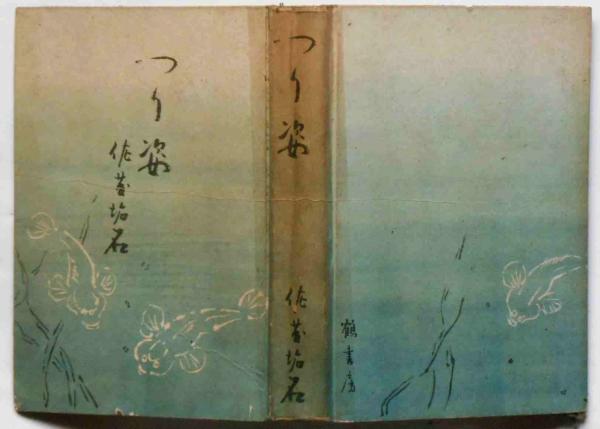 つり姿
佐藤垢石
つり姿
佐藤垢石
鶴書房